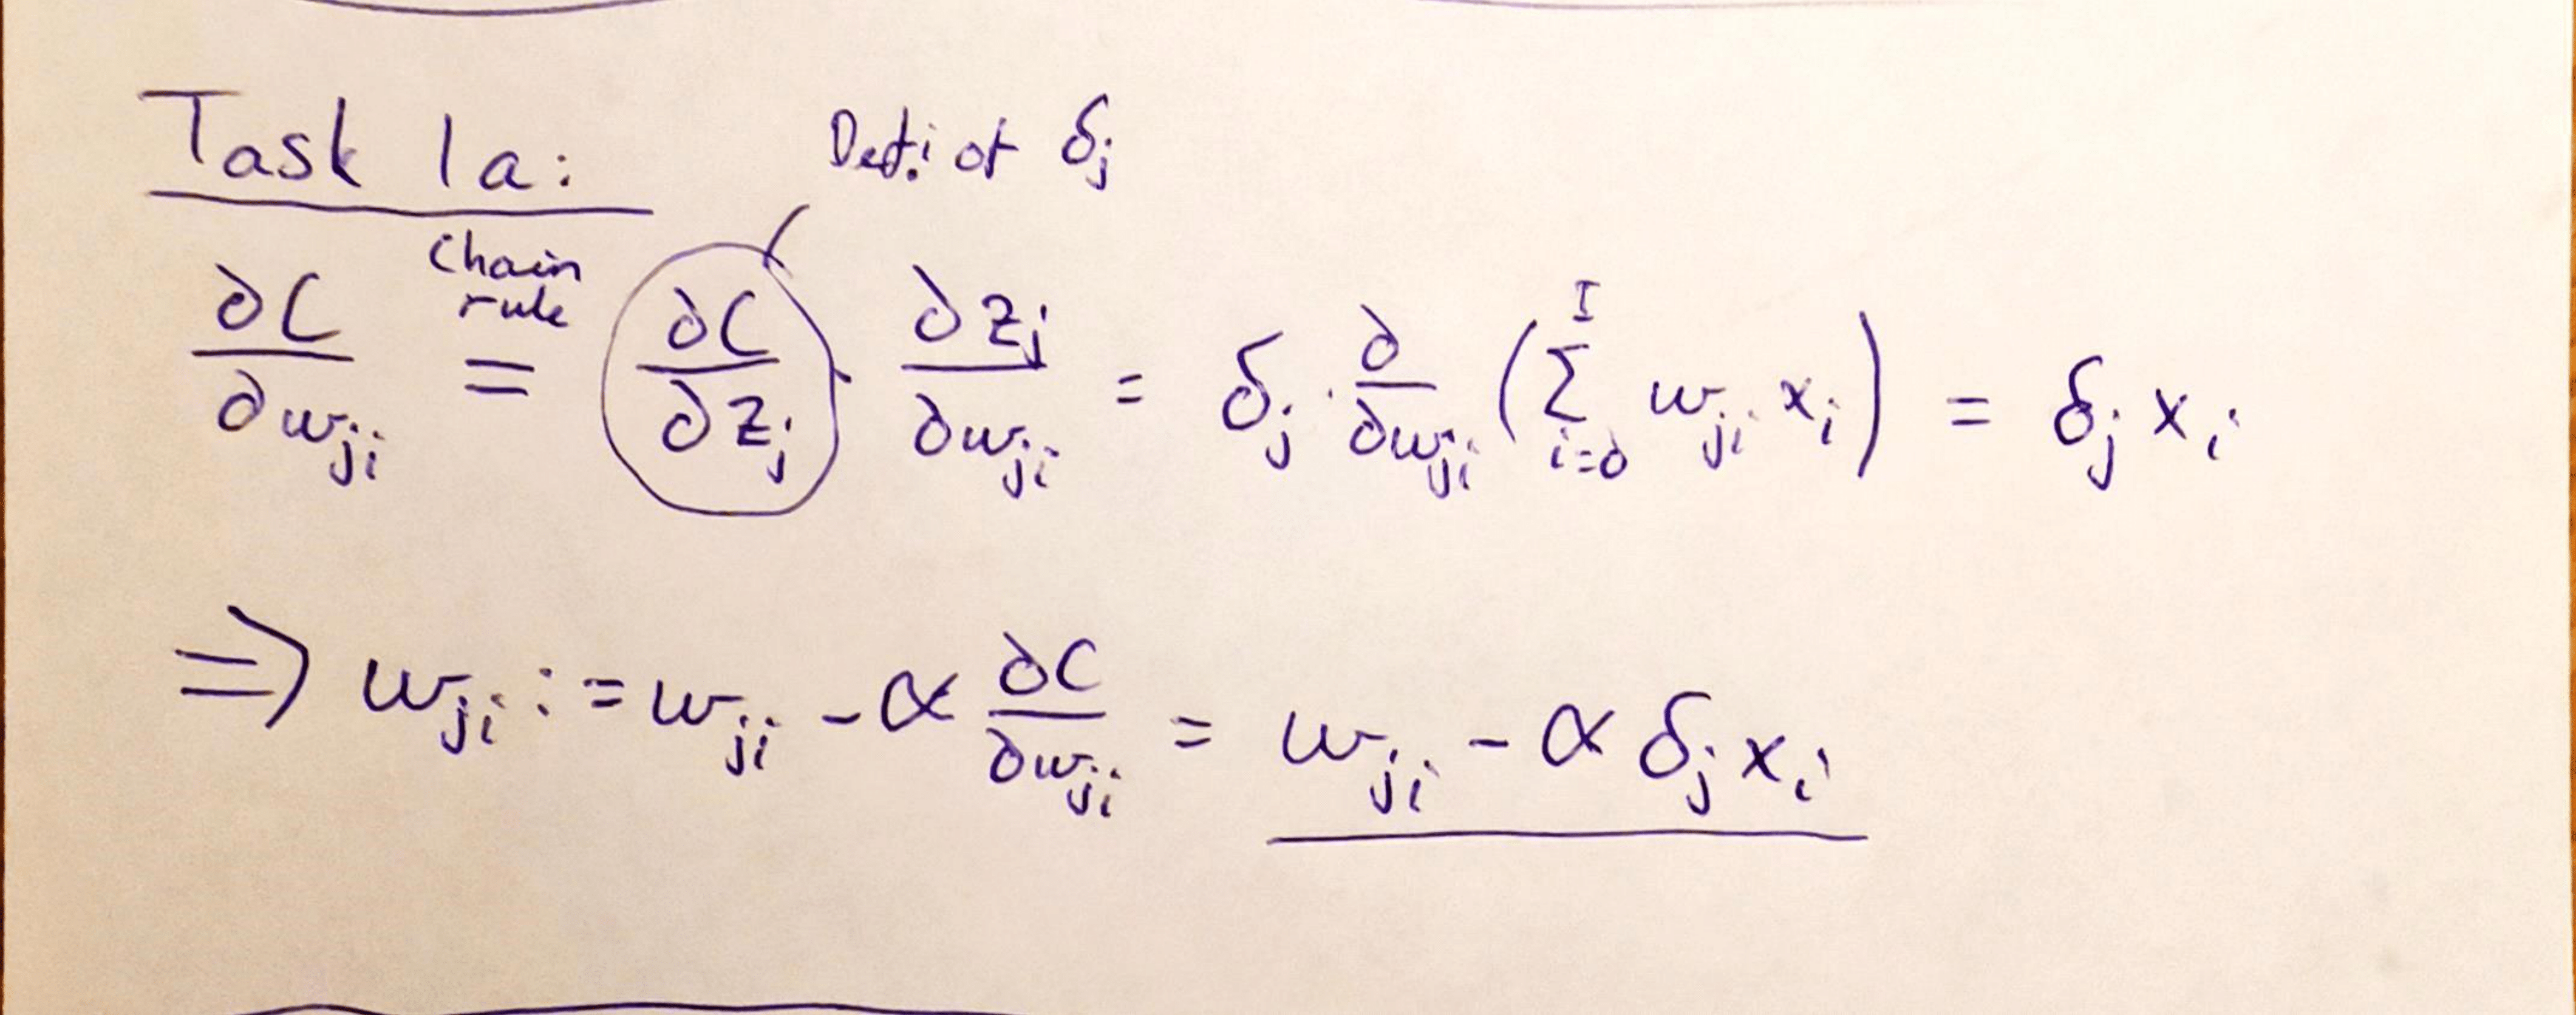 Task 1a:
Def. of δⱼ
Chain rule
∂C/∂wⱼᵢ = ∂C/∂zⱼ · ∂zⱼ/∂wⱼᵢ = δⱼ · ∂/∂wⱼᵢ (∑ᵢ₌₀ᴵ wⱼᵢ xᵢ) = δⱼ xᵢ
⇒ wⱼᵢ := wⱼᵢ - α ∂C/∂wⱼᵢ = wⱼᵢ - α δⱼ xᵢ